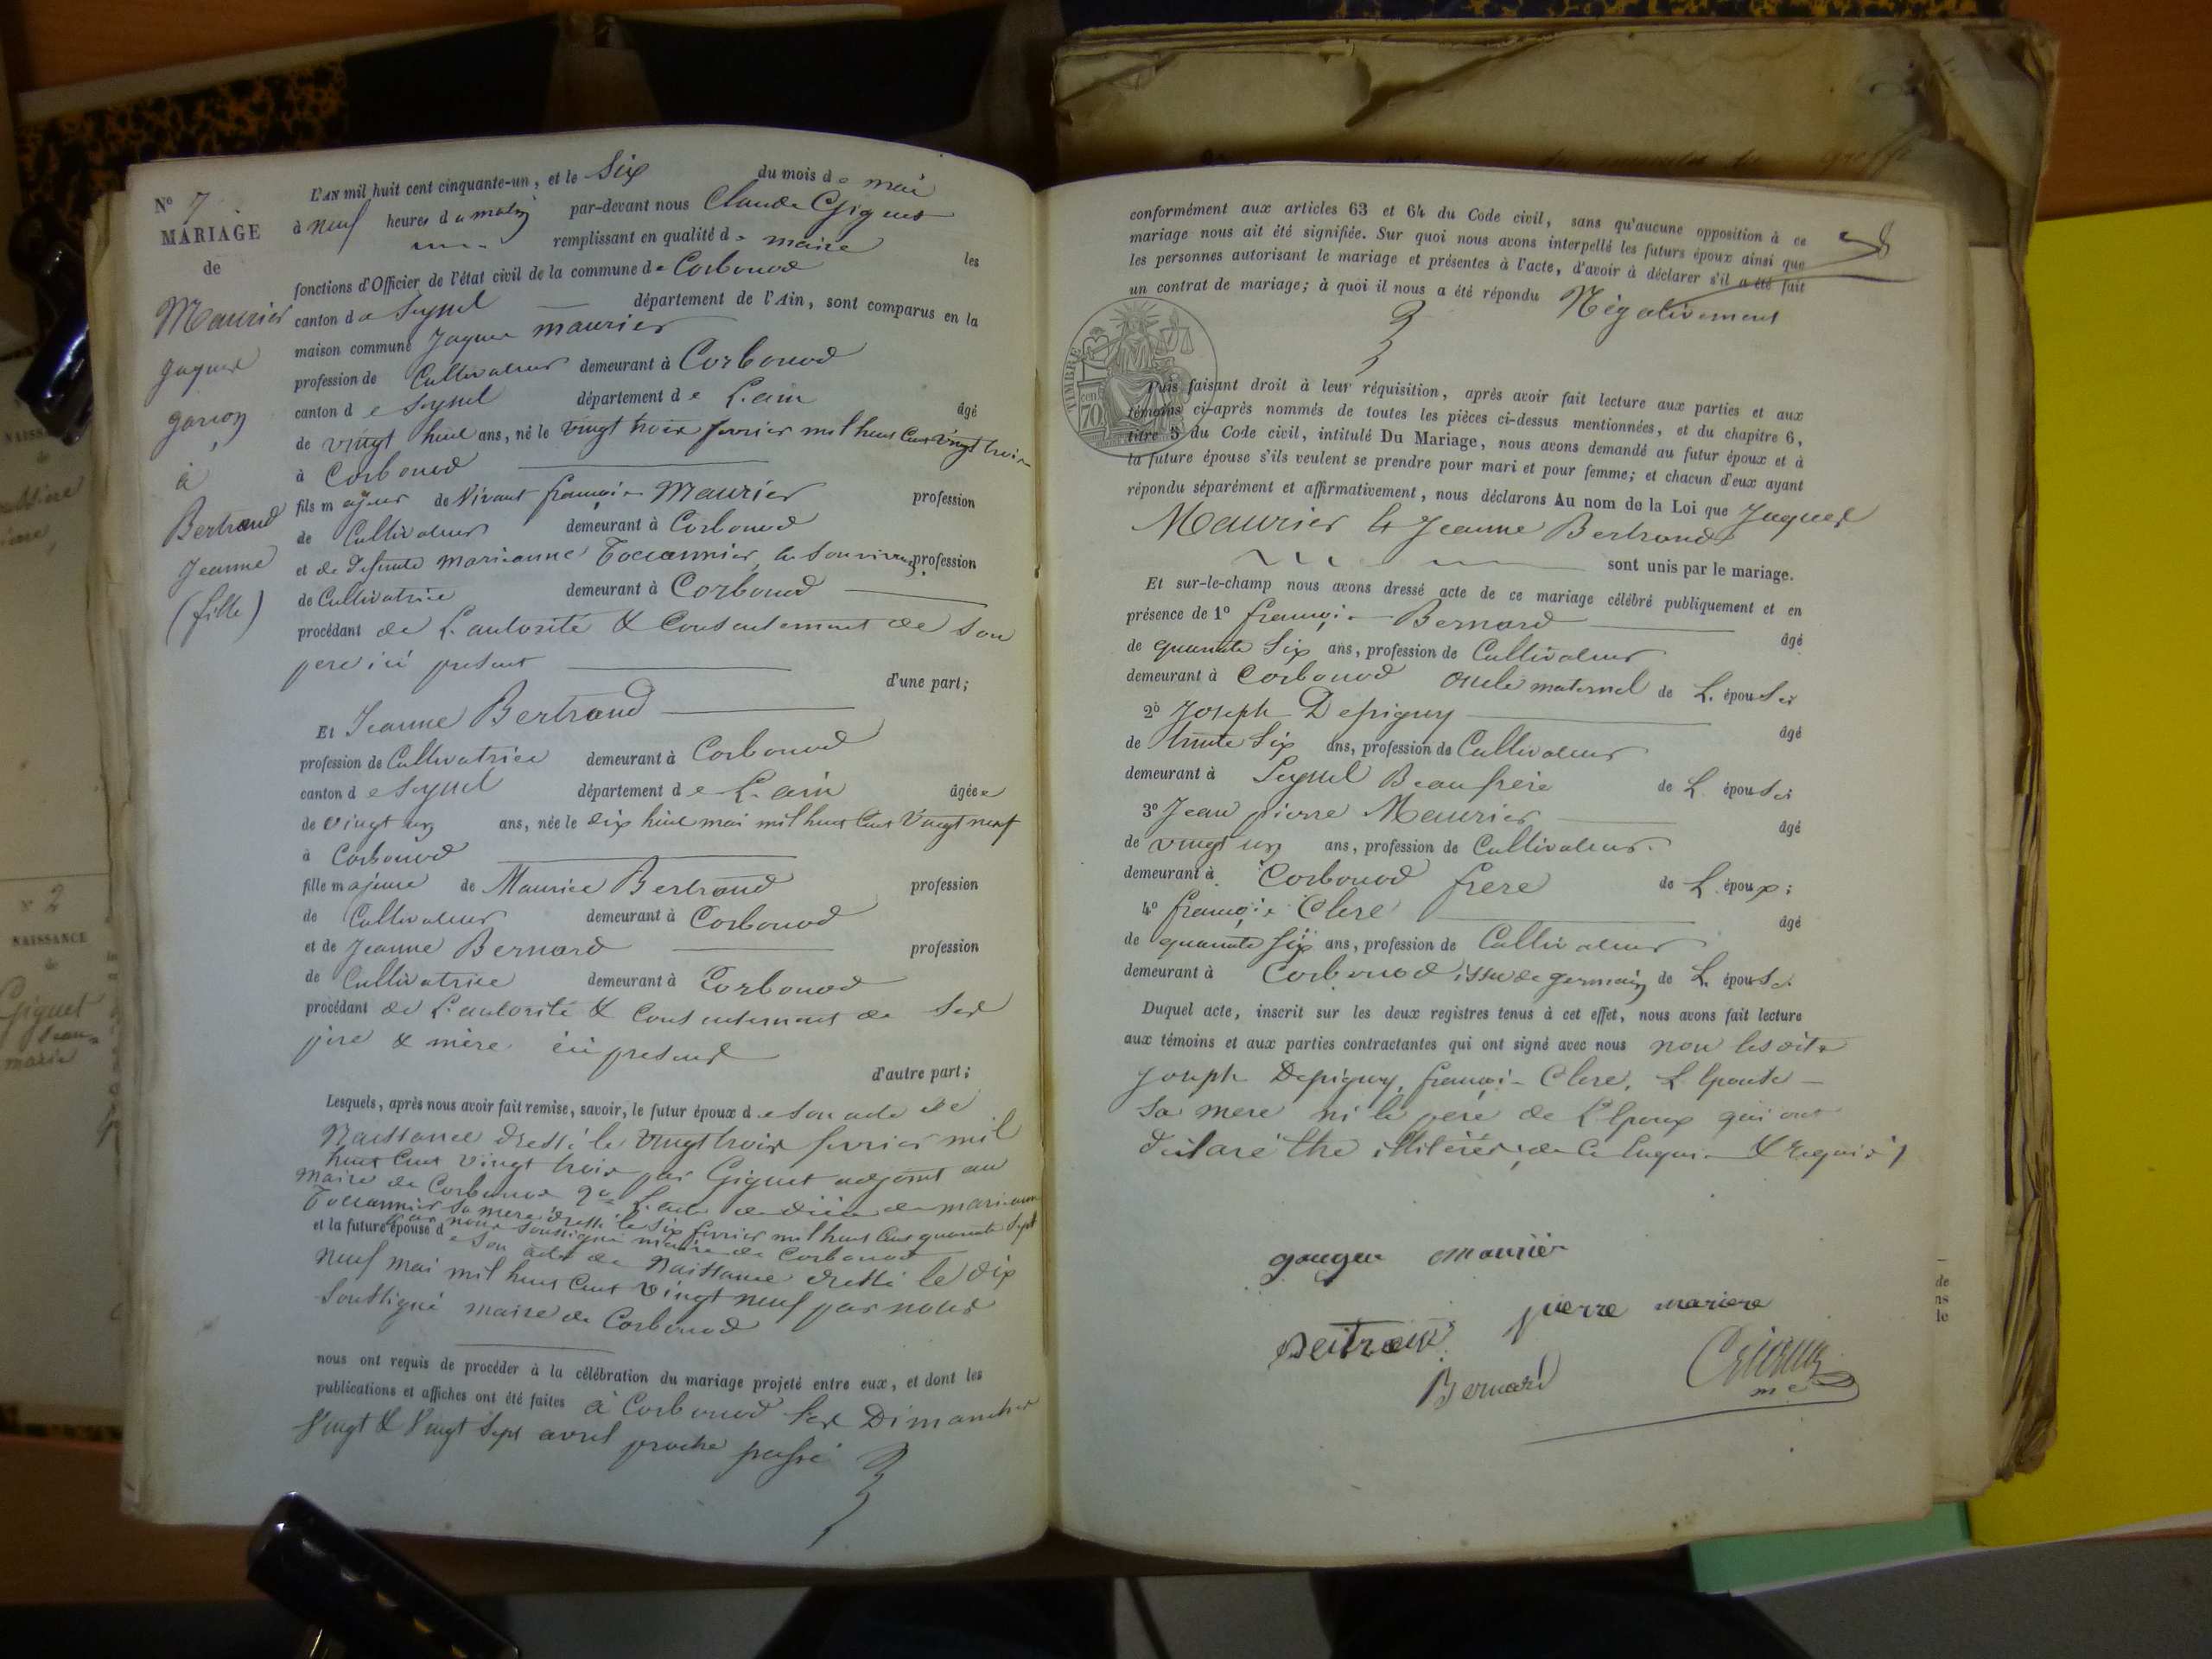 N° 7
MARIAGE
de
Maurier
Jaques
garçon
à
Bertrand
Jeanne
(fille)
L'AN mil huit cent cinquante-un, et le Six du mois de mai
à neuf heures du matin par-devant nous Claude Giguet
remplissant en qualité de maire les
fonctions d'Officier de l'état civil de la commune de Corbonod
canton de Seyssel département de l'Ain, sont comparus en la
maison commune Jaques maurier
profession de Cultivateur demeurant à Corbonod
canton de Seyssel département de L'ain âgé
de vingt huit ans, né le vingt trois fevrier mil huit cent vingt trois
à Corbonod
fils majeur de vivant françois Maurier profession
de Cultivateur demeurant à Corbonod
et de defunte marianne profession
de Cultivatrice demeurant à Corbonod
procédant de L'autorité & Consentement de son
pere ici présent
d'une part;
Et Jeanne Bertrand
profession de Cultivatrice demeurant à Corbonod
canton de Seyssel département de L'ain âgée
de vingt un ans, née le dix huit mai mil huit Cent vingt neuf
à Corbonod
fille majeure de Maurice Bertrand profession
de Cultivateur demeurant à Corbonod
et de Jeanne Bernard profession
de Cultivatrice demeurant à Corbonod
procédant de L'autorité & Consentement de ses
père & mère ici présents
d'autre part;
Lesquels, après nous avoir fait remise, savoir, le futur époux de son acte de
Naissance dressé le vingt trois fevrier mil
huit Cent vingt trois par Giguet adjoint au
maire de Corbonod 2° L'acte de décès de marianne
sa mere dressé le six fevrier mil huit Cent quarante sept
par nous soussigné maire de Corbonod
et la future épouse de son acte de Naissance dressé le dix
neuf mai mil huit Cent vingt neuf par nous
soussigné maire de Corbonod
nous ont requis de procéder à la célébration du mariage projeté entre eux, et dont les
publications et affiches ont été faites à Corbonod les Dimanches
vingt & vingt sept avril proche passé
conformément aux articles 63 et 64 du Code civil, sans qu'aucune opposition à ce
mariage nous ait été signifiée. Sur quoi nous avons interpellé les futurs époux ainsi que
les personnes autorisant le mariage et présentes à l'acte, d'avoir à déclarer s'il a été fait
un contrat de mariage; à quoi il nous a été répondu Négativement
TIMBRE
70 cen
Puis faisant droit à leur réquisition, après avoir fait lecture aux parties et aux
témoins ci-après nommés de toutes les pièces ci-dessus mentionnées, et du chapitre 6,
titre 5 du Code civil, intitulé Du Mariage, nous avons demandé au futur époux et à
la future épouse s'ils veulent se prendre pour mari et pour femme; et chacun d'eux ayant
répondu séparément et affirmativement, nous déclarons Au nom de la Loi que Jaques
Maurier & Jeanne Bertrand
sont unis par le mariage.
Et sur-le-champ nous avons dressé acte de ce mariage célébré publiquement et en
présence de 1° françois Bernard âgé
de quarante six ans, profession de Cultivateur
demeurant à Corbonod oncle maternel de L'épouse
2° Joseph Depigny âgé
de trente six ans, profession de Cultivateur
demeurant à Seyssel Beaufrère de L'épouse
3° Jean pierre Maurier âgé
de vingt un ans, profession de Cultivateur
demeurant à Corbonod frere de L'époux;
4° françois Clerc âgé
de quarante six ans, profession de Cultivateur
demeurant à Corbonod issu de germain de L'épouse
Duquel acte, inscrit sur les deux registres tenus à cet effet, nous avons fait lecture
aux témoins et aux parties contractantes qui ont signé avec nous non lesdits
Joseph Depigny, françois Clerc, L'épouse
sa mere ni le pere de L'époux qui ont
déclaré être illitérés de ce enquis & requis
maurier
pierre mariere
Bernard
N° 2
NAISSANCE
de
Giguet
Jean-
marie